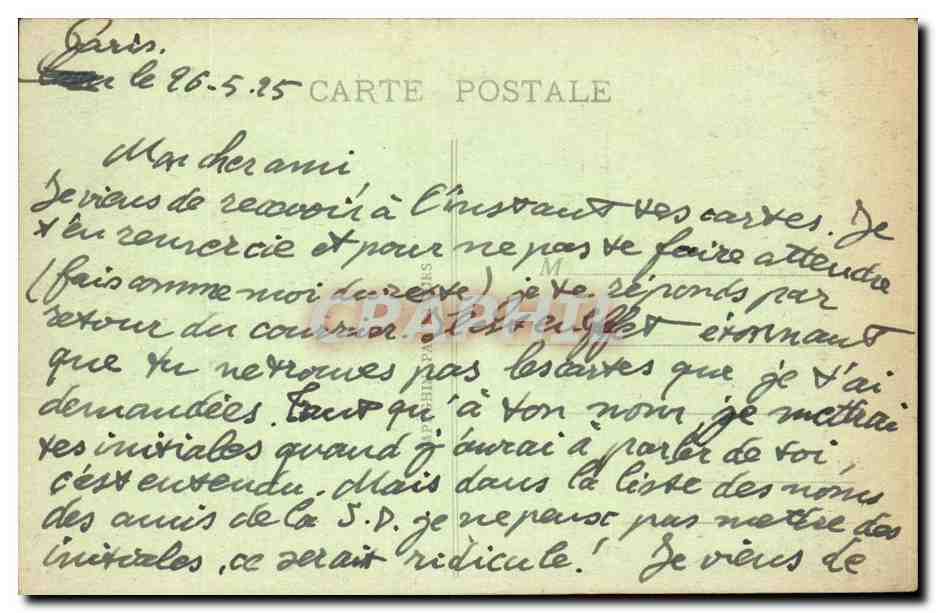 Paris.
le 26-5.25 CARTE POSTALE
Mon cher ami
Je viens de recevoir à l'instant tes cartes. Je
t'en remercie et pour ne pas te faire attendre
M
(fais comme moi du reste) je te réponds par
CPAPHIL
retour du courrier. Il est en effet étonnant
que tu ne trouves pas les cartes que je t'ai
demandées. Tant qu'à ton nom, je mettrai
tes initiales quand j'aurai à parler de toi,
c'est entendu. Mais dans la liste des noms
des amis de la S.D. je ne peux pas mettre des
initiales, ce serait ridicule! Je viens de